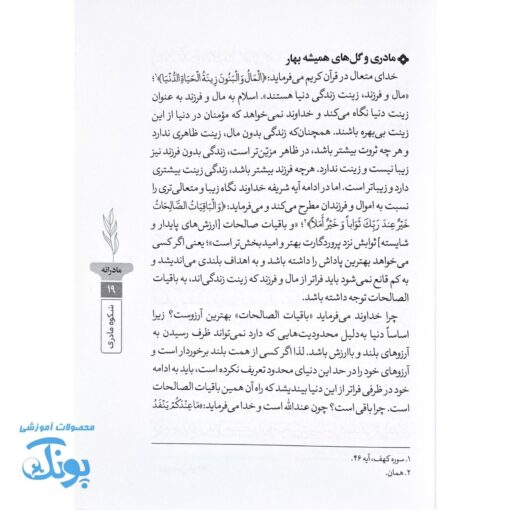 مادری و گل‌های همیشه بهار
خدای متعال در قرآن کریم می‌فرماید: ﴿اَلْمَالُ وَالْبَنُونَ زِینَةُ الْحَیَاةِ الدُّنْیَا﴾۱؛
«مال و فرزند، زینت زندگی دنیا هستند». اسلام به مال و فرزند به عنوان
زینت دنیا نگاه می‌کند و خداوند نمی‌خواهد که مؤمنان در دنیا از این
زینت بی‌بهره باشند. همچنان‌که زندگی بدون مال، زینت ظاهری ندارد
و هر چه ثروت بیشتر باشد، در ظاهر مزیّن‌تر است، زندگی بدون فرزند نیز
زیبا نیست و زینت ندارد. هرچه فرزند بیشتر باشد، زندگی زینت بیشتری
دارد و زیباتر است. اما در ادامه آیه شریفه خداوند نگاه زیبا و متعالی‌تری را
نسبت به اموال و فرزندان مطرح می‌کند و می‌فرماید: ﴿وَالْبَاقِیَاتُ الصَّالِحَاتُ
خَیْرٌ عِندَ رَبِّکَ ثَوَاباً وَ خَیْرٌ أَمَلاً﴾۲؛ «و باقیات صالحات [ارزش‌های پایدار و
شایسته] ثوابش نزد پروردگارت بهتر و امیدبخش‌تر است»؛ یعنی اگر کسی
می‌خواهد بهترین پاداش را داشته باشد و به اهداف بلندی می‌اندیشد و
به کم قانع نمی‌شود باید فراتر از مال و فرزند که زینت زندگی‌اند، به باقیات
الصالحات توجه داشته باشد.
چرا خداوند می‌فرماید «باقیات الصالحات» بهترین آرزوست؟ زیرا
اساساً دنیا به‌دلیل محدودیت‌هایی که دارد نمی‌تواند ظرف رسیدن به
آرزوهای بلند و باارزش باشد. لذا اگر کسی از همت بلند برخوردار است و
آرزوهای خود را در حد این دنیای محدود تعریف نکرده است، باید به ادامه
خود در ظرفی فراتر از این دنیا بیندیشد که راه آن همین باقیات الصالحات
است. چرا باقی است؟ چون عندالله است و خدا می‌فرماید: ﴿مَا عِندَکُمْ یَنْفَدُ
۱. سوره کهف، آیه ۴۶.
۲. همان.
مادرانه
۱۹
شکوه مادری
محصولات آموزشی
پونک